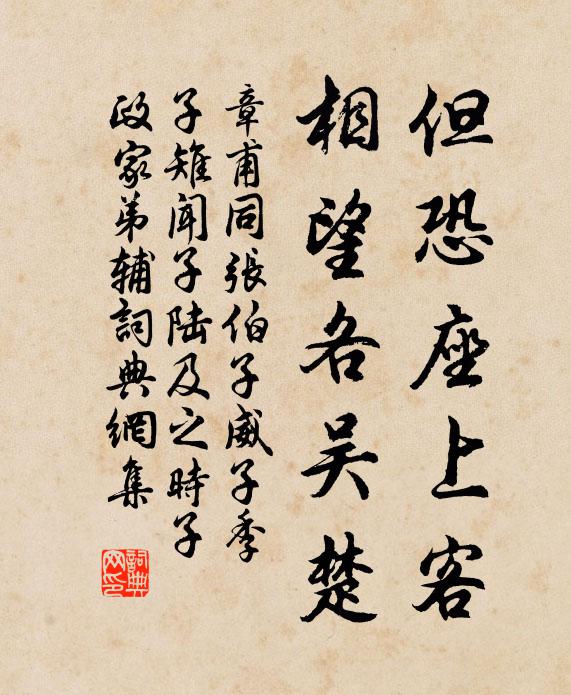 但恐座上客
相望各吴楚
章甫同張伯子威子季
子雉闻子陆及之時子
政家弟辅詞典網集
詞典
网印